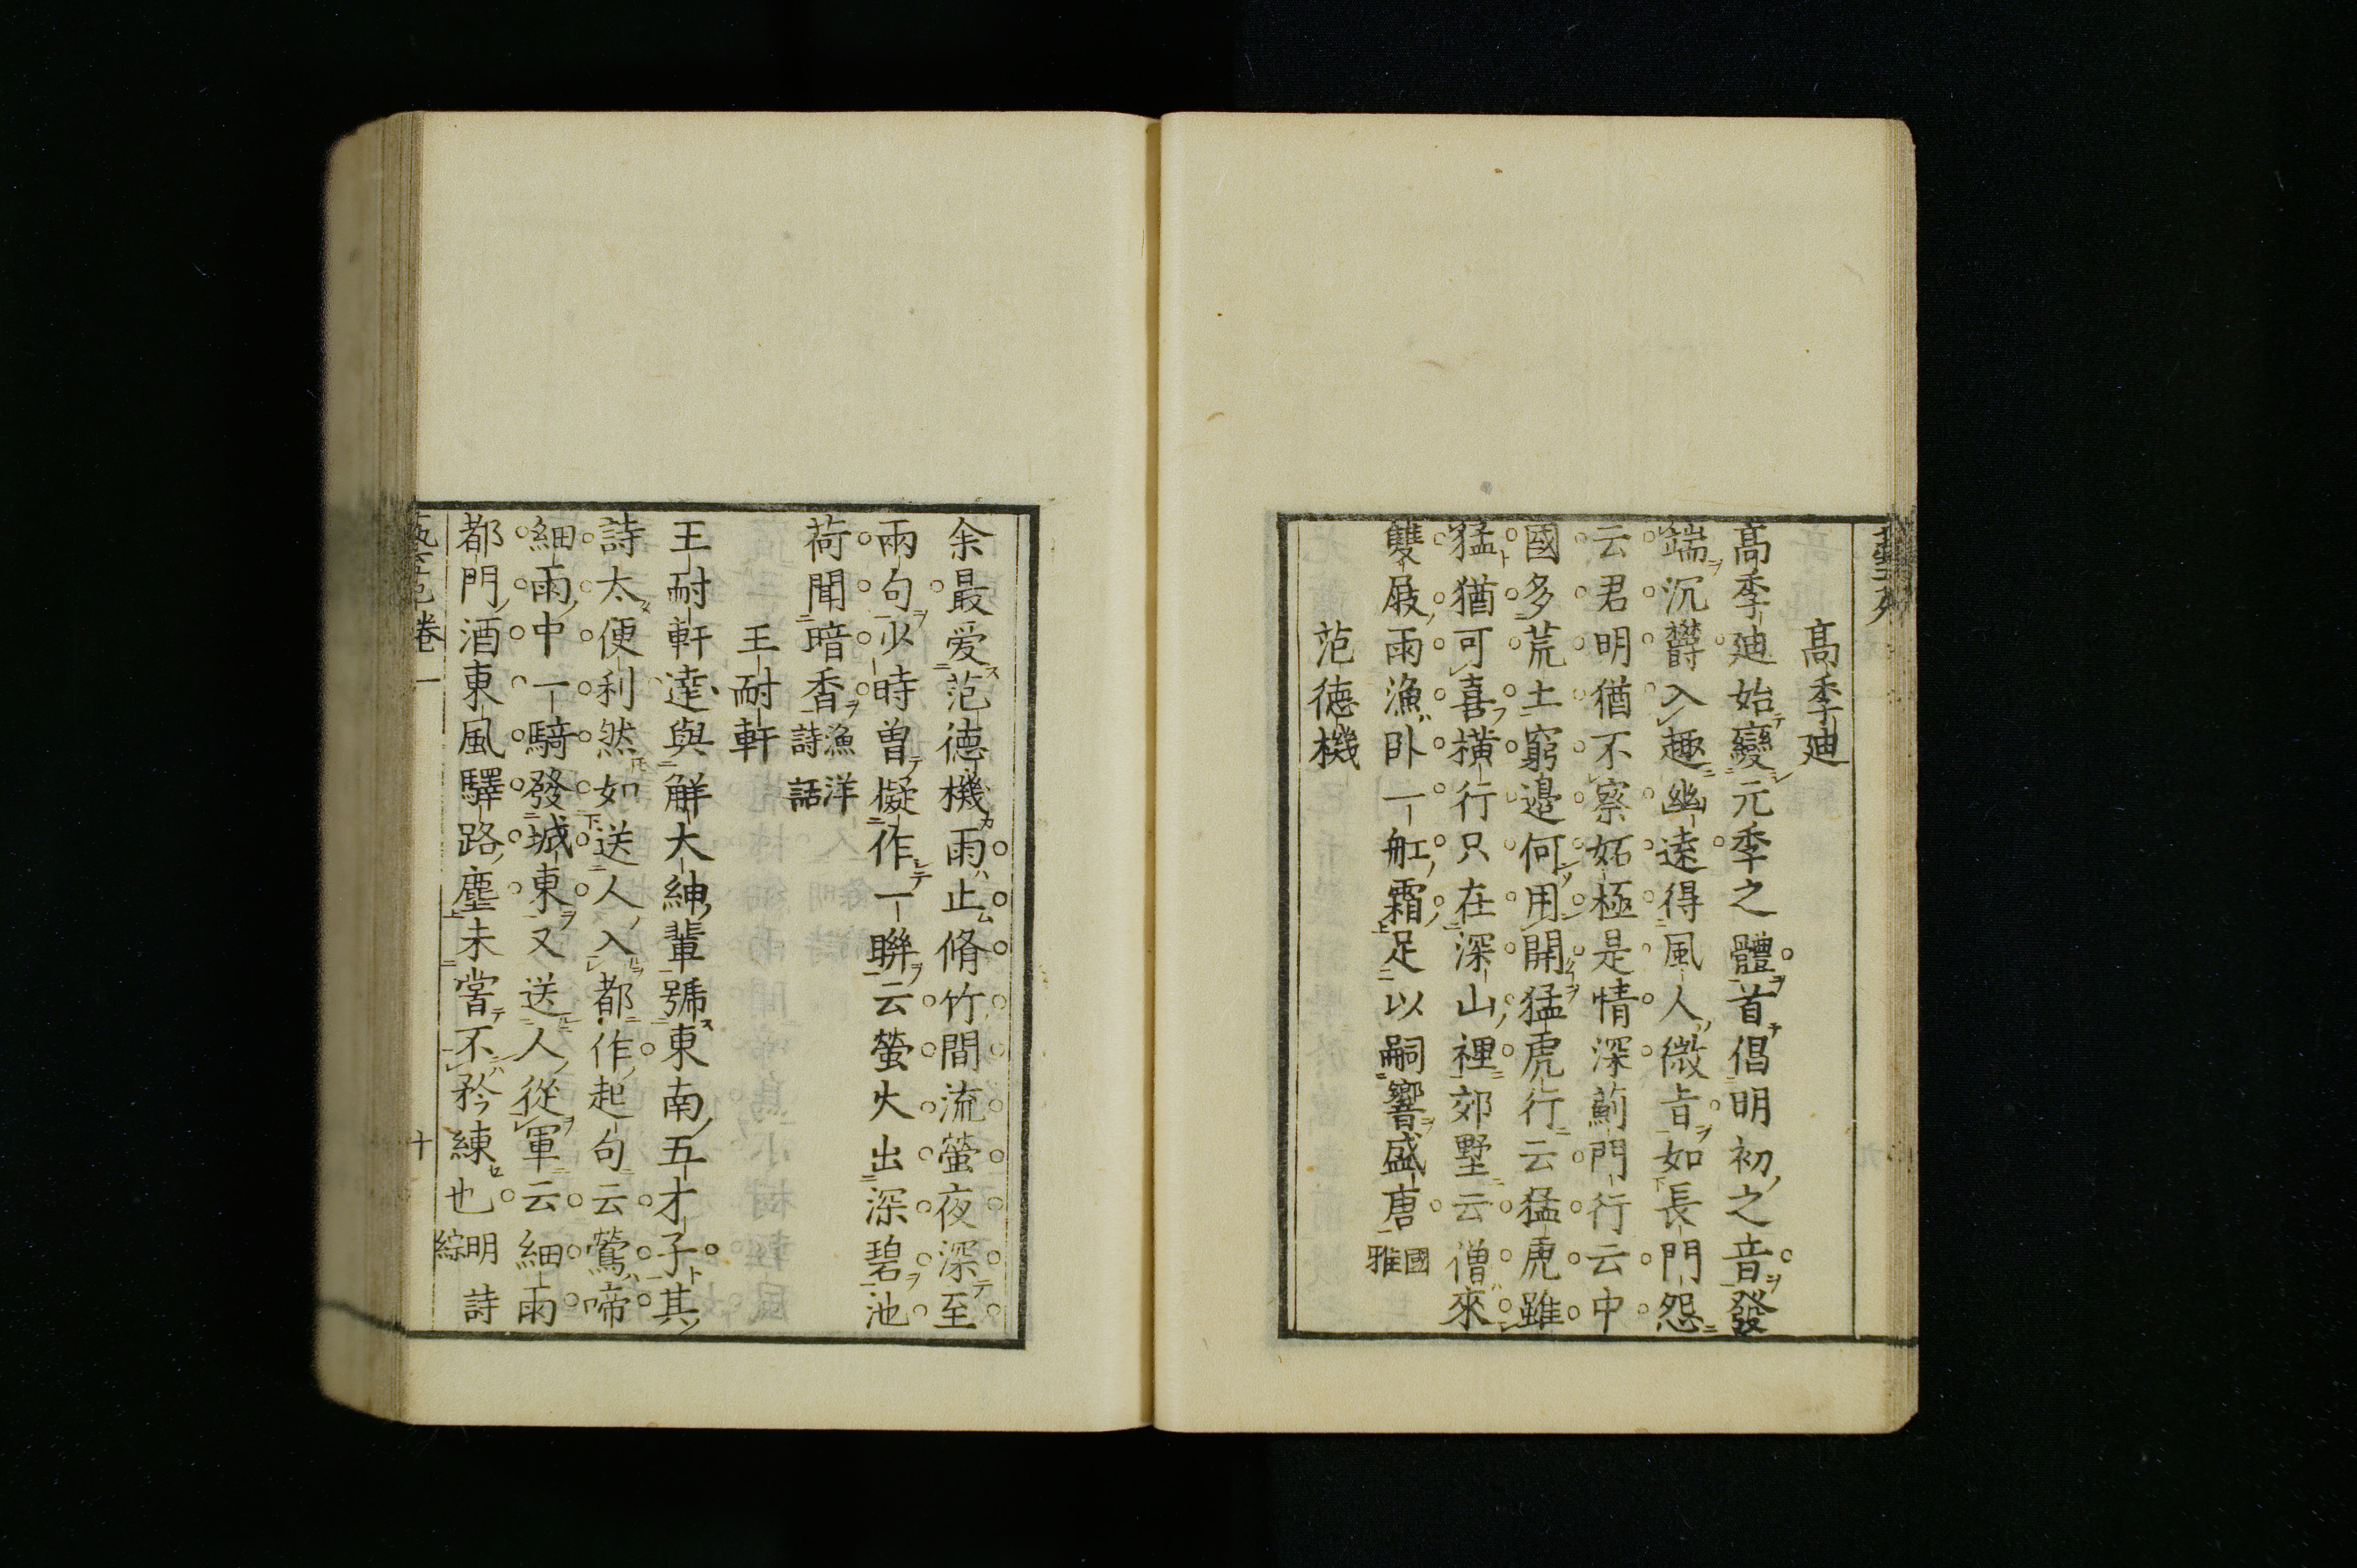 高季迪
高季迪始變元季之體首倡明初之音發
端沉欝入趣幽遠得風人微旨如長門怨
云君明猶不察妬極是情深薊門行云中
國多荒土窮邊何用開猛虎行云猛虎雖
猛猶可喜橫行只在深山裡郊墅云僧來
雙屐雨漁卧一舡霜足以嗣響盛唐國雅
范德機
余最爱范德機雨止脩竹間流螢夜深至
兩句少時曽儗作一聯云螢火出深碧池
荷聞暗香漁洋詩話
王耐軒
王耐軒達與觧大紳輩號東南五才子其
詩太便利然如送人入都作起句云鶯啼
細雨中一騎發城東又送人從軍云細雨
都門酒東風驛路塵未嘗不矜練也明詩綜
卷一
十